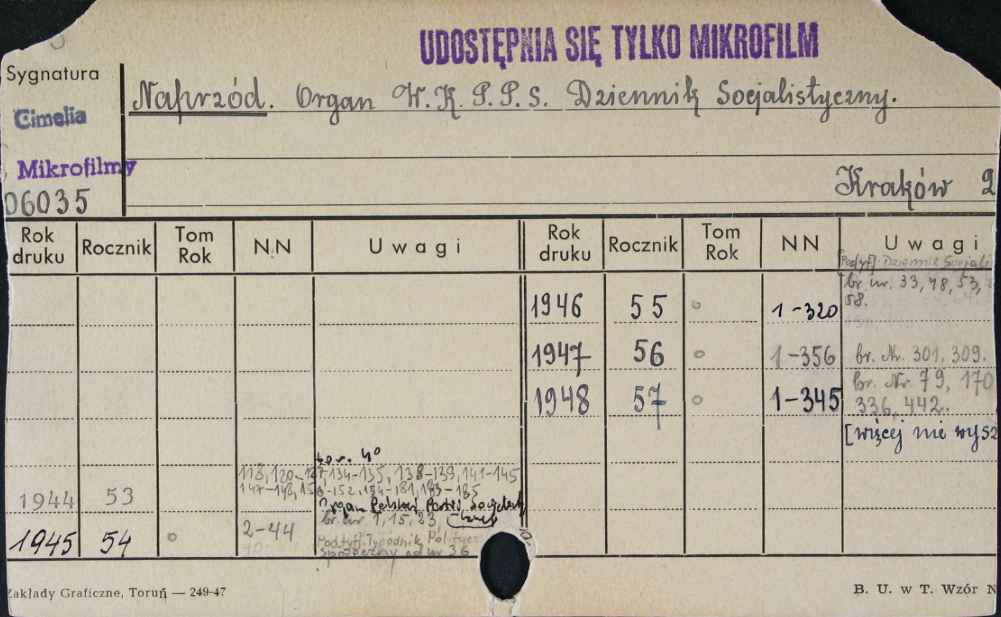 UDOSTĘPNIA SIĘ TYLKO MIKROFILM
Sygnatura
Cimelia
Mikrofilmy
06035
Naprzód. Organ W.K.P.P.S. Dziennik Socjalistyczny.
Kraków 2
Rok druku Rocznik Tom Rok NN Uwagi Rok druku Rocznik Tom Rok NN Uwagi
[Podtyt.] Dziennik Socjali
br. nr. 33, 48, 53,
58.
1946 55 o 1-320
1947 56 o 1-356 br. Nr. 301, 309.
1948 57 o 1-345 br. Nr. 79, 170
336, 442.
[więcej nie wysz
4°
118, 120-127, 134-135, 138-139, 141-145
147-148, 150-152, 154-181, 183-185
1944 53
Organ Polskiej Partji Socjalist
br. nr 1, 15, 23
1945 54 o 2-44
Podtyt. Tygodnik Polityczno
Społeczny od nr 36
Zakłady Graficzne, Toruń — 249-47
B. U. w T. Wzór N